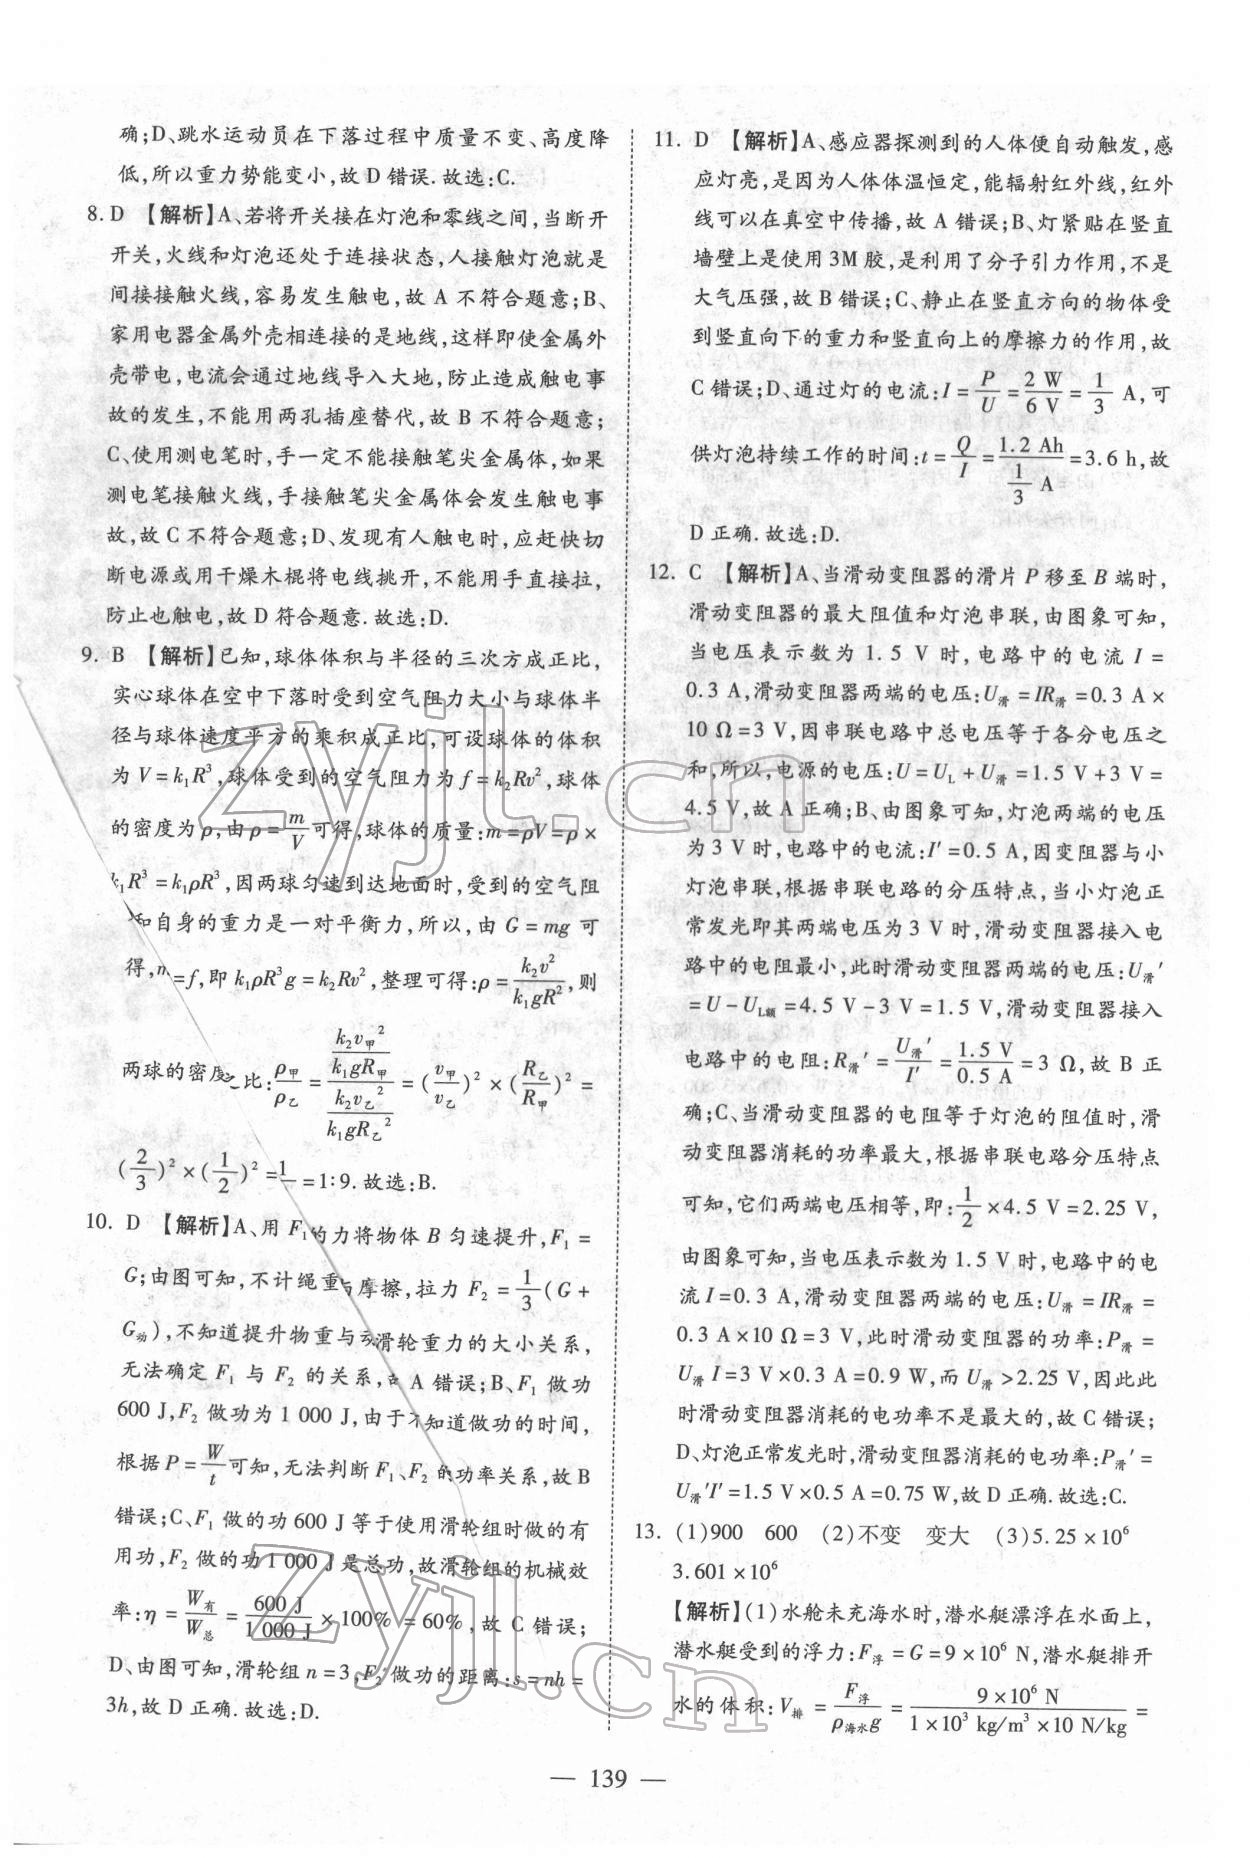 确;D、跳水运动员在下落过程中质量不变、高度降
低,所以重力势能变小,故 D 错误. 故选:C.
8. D 【解析】A、若将开关接在灯泡和零线之间,当断开
开关,火线和灯泡还处于连接状态,人接触灯泡就是
间接接触火线,容易发生触电,故 A 不符合题意;B、
家用电器金属外壳相连接的是地线,这样即使金属外
壳带电,电流会通过地线导入大地,防止造成触电事
故的发生,不能用两孔插座替代,故 B 不符合题意;
C、使用测电笔时,手一定不能接触笔尖金属体,如果
测电笔接触火线,手接触笔尖金属体会发生触电事
故,故 C 不符合题意;D、发现有人触电时,应赶快切
断电源或用干燥木棍将电线挑开,不能用手直接拉,
防止也触电,故 D 符合题意. 故选:D.
9. B 【解析】已知,球体体积与半径的三次方成正比,
实心球体在空中下落时受到空气阻力大小与球体半
径与球体速度平方的乘积成正比,可设球体的体积
为 V=k₁R³,球体受到的空气阻力为 f=k₂Rv²,球体
的密度为 ρ,由 ρ=m/V可得,球体的质量:m=ρV=ρ×
k₁R³=k₁ρR³,因两球匀速到达地面时,受到的空气阻
和自身的重力是一对平衡力,所以,由 G=mg 可
得,=f,即 k₁ρR³g=k₂Rv²,整理可得:ρ=k₂v²/k₁gR²,则
两球的密度之比:ρ甲/ρ乙=(k₂v甲²/k₁gR甲²)/(k₂v乙²/k₁gR乙²)=(v甲/v乙)²×(R乙/R甲)²=
(2/3)²×(1/2)²=1/=1:9. 故选:B.
10. D 【解析】A、用 F₁的力将物体 B 匀速提升,F₁=
G;由图可知,不计绳重与摩擦,拉力 F₂=1/3(G+
G动),不知道提升物重与动滑轮重力的大小关系,
无法确定 F₁ 与 F₂ 的关系,故 A 错误;B、F₁ 做功
600 J,F₂ 做功为 1 000 J,由于不知道做功的时间,
根据 P=W/t可知,无法判断 F₁、F₂ 的功率关系,故 B
错误;C、F₁ 做的功 600 J 等于使用滑轮组时做的有
用功,F₂ 做的功 1 000 J 是总功,故滑轮组的机械效
率:η=W有/W总=600 J/1 000 J×100%=60%,故 C 错误;
D、由图可知,滑轮组 n=3,F₂ 做功的距离:s=nh=
3h,故 D 正确. 故选:D.
11. D 【解析】A、感应器探测到的人体便自动触发,感
应灯亮,是因为人体体温恒定,能辐射红外线,红外
线可以在真空中传播,故 A 错误;B、灯紧贴在竖直
墙壁上是使用 3M 胶,是利用了分子引力作用,不是
大气压强,故 B 错误;C、静止在竖直方向的物体受
到竖直向下的重力和竖直向上的摩擦力的作用,故
C 错误;D、通过灯的电流:I=P/U=2 W/6 V=1/3 A,可
供灯泡持续工作的时间:t=Q/I=1.2 Ah/(1/3 A)=3.6 h,故
D 正确. 故选:D.
12. C 【解析】A、当滑动变阻器的滑片 P 移至 B 端时,
滑动变阻器的最大阻值和灯泡串联,由图象可知,
当电压表示数为 1.5 V 时,电路中的电流 I=
0.3 A,滑动变阻器两端的电压:U滑=IR滑=0.3 A×
10 Ω=3 V,因串联电路中总电压等于各分电压之
和,所以,电源的电压:U=UL+U滑=1.5 V+3 V=
4.5 V,故 A 正确;B、由图象可知,灯泡两端的电压
为 3 V 时,电路中的电流:I′=0.5 A,因变阻器与小
灯泡串联,根据串联电路的分压特点,当小灯泡正
常发光即其两端电压为 3 V 时,滑动变阻器接入电
路中的电阻最小,此时滑动变阻器两端的电压:U滑′
=U-UL额=4.5 V-3 V=1.5 V,滑动变阻器接入
电路中的电阻:R滑′=U滑′/I′=1.5 V/0.5 A=3 Ω,故 B 正
确;C、当滑动变阻器的电阻等于灯泡的阻值时,滑
动变阻器消耗的功率最大,根据串联电路分压特点
可知,它们两端电压相等,即:1/2×4.5 V=2.25 V,
由图象可知,当电压表示数为 1.5 V 时,电路中的电
流 I=0.3 A,滑动变阻器两端的电压:U滑=IR滑=
0.3 A×10 Ω=3 V,此时滑动变阻器的功率:P滑=
U滑I=3 V×0.3 A=0.9 W,而 U滑>2.25 V,因此此
时滑动变阻器消耗的电功率不是最大的,故 C 错误;
D、灯泡正常发光时,滑动变阻器消耗的电功率:P滑′=
U滑′I′=1.5 V×0.5 A=0.75 W,故 D 正确. 故选:C.
13. (1)900 600 (2)不变 变大 (3)5.25×10⁶
3.601×10⁶
【解析】(1)水舱未充海水时,潜水艇漂浮在水面上,
潜水艇受到的浮力:F浮=G=9×10⁶ N,潜水艇排开
水的体积:V排=F浮/ρ海水g=9×10⁶ N/(1×10³ kg/m³×10 N/kg)=
— 139 —
zyjl.cn
zyjl.cn